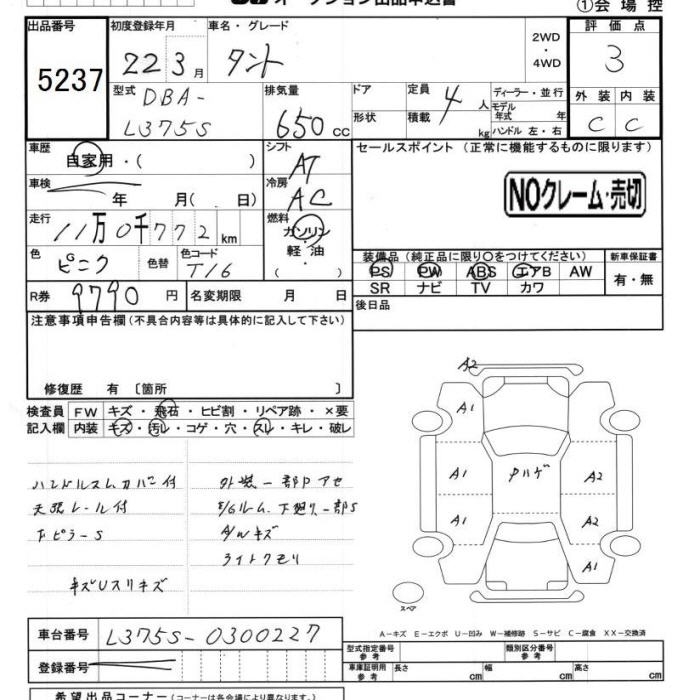 ①会 場 控
出品番号 初度登録年月 車名・グレード 2WD・4WD 評 価 点
5237 22 3月 タント 3
型式 DBA-L375S 排気量 650 cc ドア 形状 定員 4 人 積載 kg ディーラー・並行 モデル年式 年 ハンドル 左・右 外 装 内 装 C C
車歴 自家用・( ) シフト AT セールスポイント (正常に機能するものに限ります)
車検 年 月( 日) 冷房 AC NOクレーム・売切
走行 11万0千772 km 燃料 ガソリン・軽・油 ( )
色 ピンク 色替 色コード T16
装備品 (純正品に限り○をつけてください) 新車保証書
PS PW ABS エアB AW 有・無
SR ナビ TV カワ
R券 9790 円 名変期限 月 日 後日品
注意事項申告欄 (不具合内容等は具体的に記入して下さい)
修復歴 有 〔箇所 〕
検査員 FW キズ・飛石・ヒビ割・リペア跡・×要
記入欄 内装 キズ・汚レ・コゲ・穴・スレ・キレ・破レ
ハンドルスレカバー付 外装一部Pアセ
天張レール付 E/Gルーム.下廻り一部S
A/Wキズ
ライトクモリ
キズUスリキズ
A2
A1
A1 A2
A1 A2
A1
スペア
A-キズ E-エクボ U-凹み W-補修跡 S-サビ C-腐食 XX-交換済
車台番号 L375S-0300227
登録番号
型式指定番号 参考 類別区分番号 参考
車庫証明用 参考 長さ cm 幅 cm 高さ cm
希望出品コーナー (コーナーは各会場により異なります)